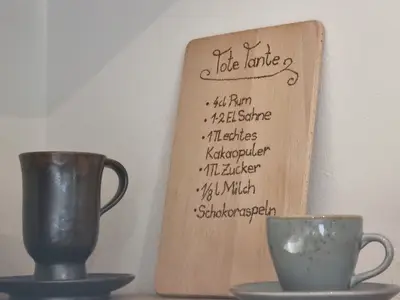 Tote Tante
• 4cl Rum
• 1-2 El Sahne
• 1Tl echtes
Kakaopuler
• 1Tl Zucker
• 1/8 l Milch
• Schokoraspeln